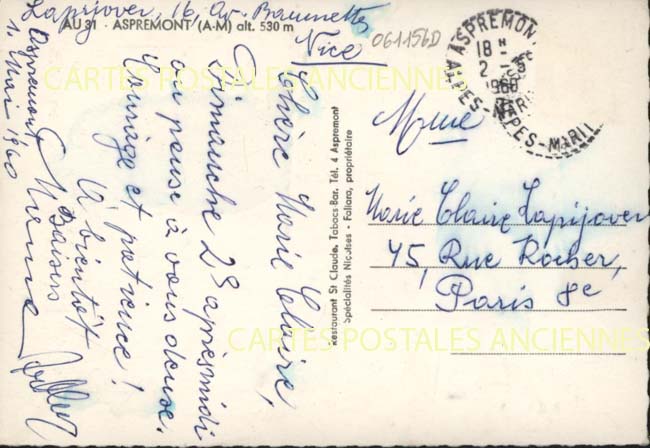 Lapijover, 16, Av. Baumettes
Nice
061156D
AU 31 - ASPREMONT (A-M) alt. 530 m
Aspremont
1. Mai 1960
Chère Marie Claire,
Dimanche 28 après midi
on pense à vous deux.
Courage et patience !
A bientôt
Baisers
Restaurant St Claude, Tabacs Bar, Tél. 4 Aspremont
Spécialités Niçoises - Faliara, propriétaire
ASPREMONT
18 H
2 - 5
1960
ALPES-MARITIMES
Mme
Marie Claire Lapijover
45, Rue Rocher,
Paris 8e
CARTES POSTALES ANCIENNES
CARTES POSTALES ANCIENNES